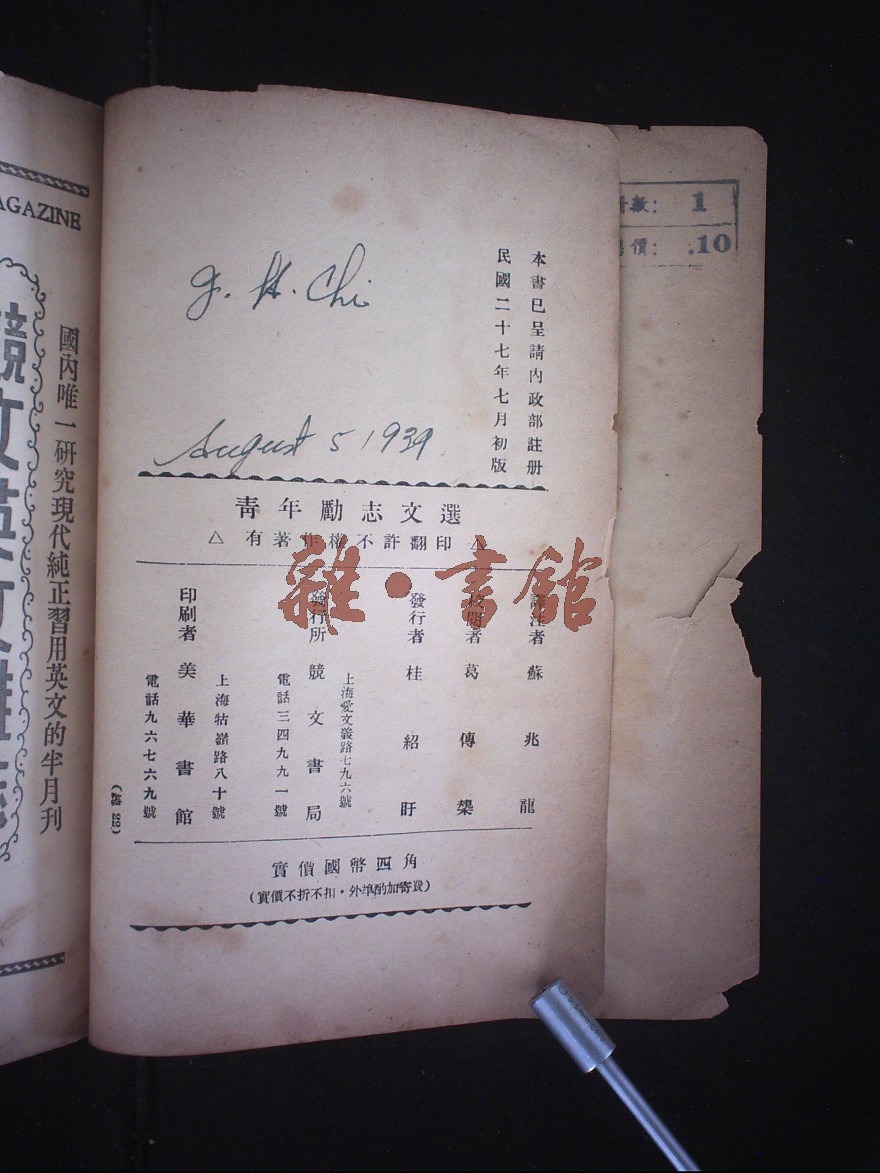 AGAZINE
國內唯一研究現代純正習用英文的半月刊
競文英文雜誌
G. H. Chi
August 5 1939
本書已呈請內政部註册
民國二十七年七月初版
青年勵志文選
△ 有著作權不許翻印 △
雜·書館
譯注者 蘇兆龍
校閱者 葛傳槼
發行者 桂紹盱
上海愛文義路七九六號
發行所 競文書局
電話三四九九一號
上海牯嶺路八十號
印刷者 美華書館
電話九六七六九號
實價國幣四角
(實價不折不扣·外埠酌加寄費)
冊數: 1
價: .10